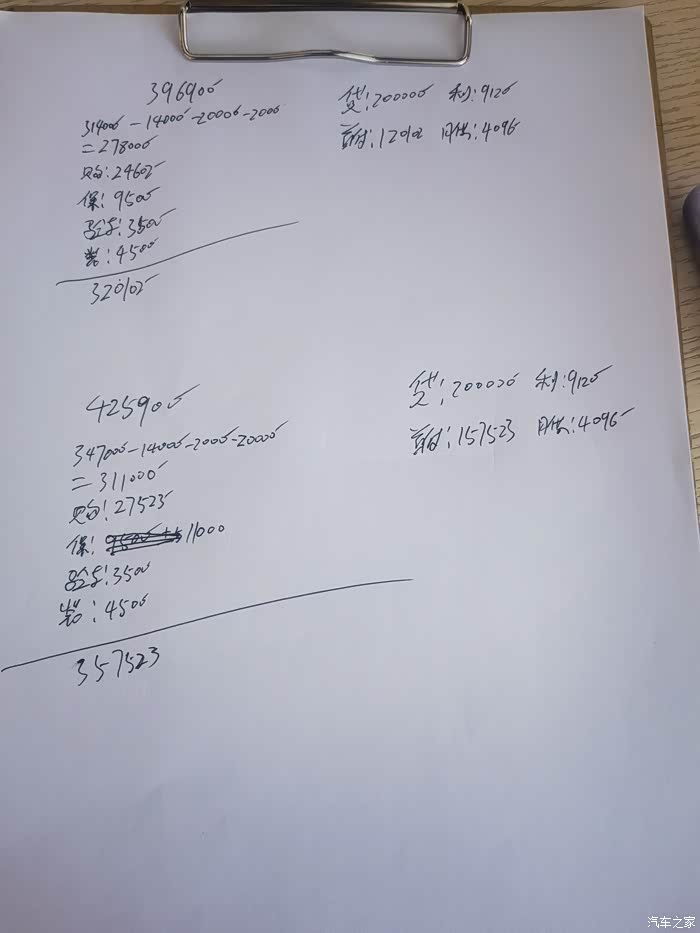 396900
314000-14000-20000-2000
=278000
购:24602
保:9500
验车:3500
装:4500
320102
贷:200000 利:9120
首付:120102 月供:4096
425900
347000-14000-2000-20000
=311000
购:27523
保:11000
验车:3500
装:4500
357523
贷:200000 利:9120
首付:157523 月供:4096
汽车之家